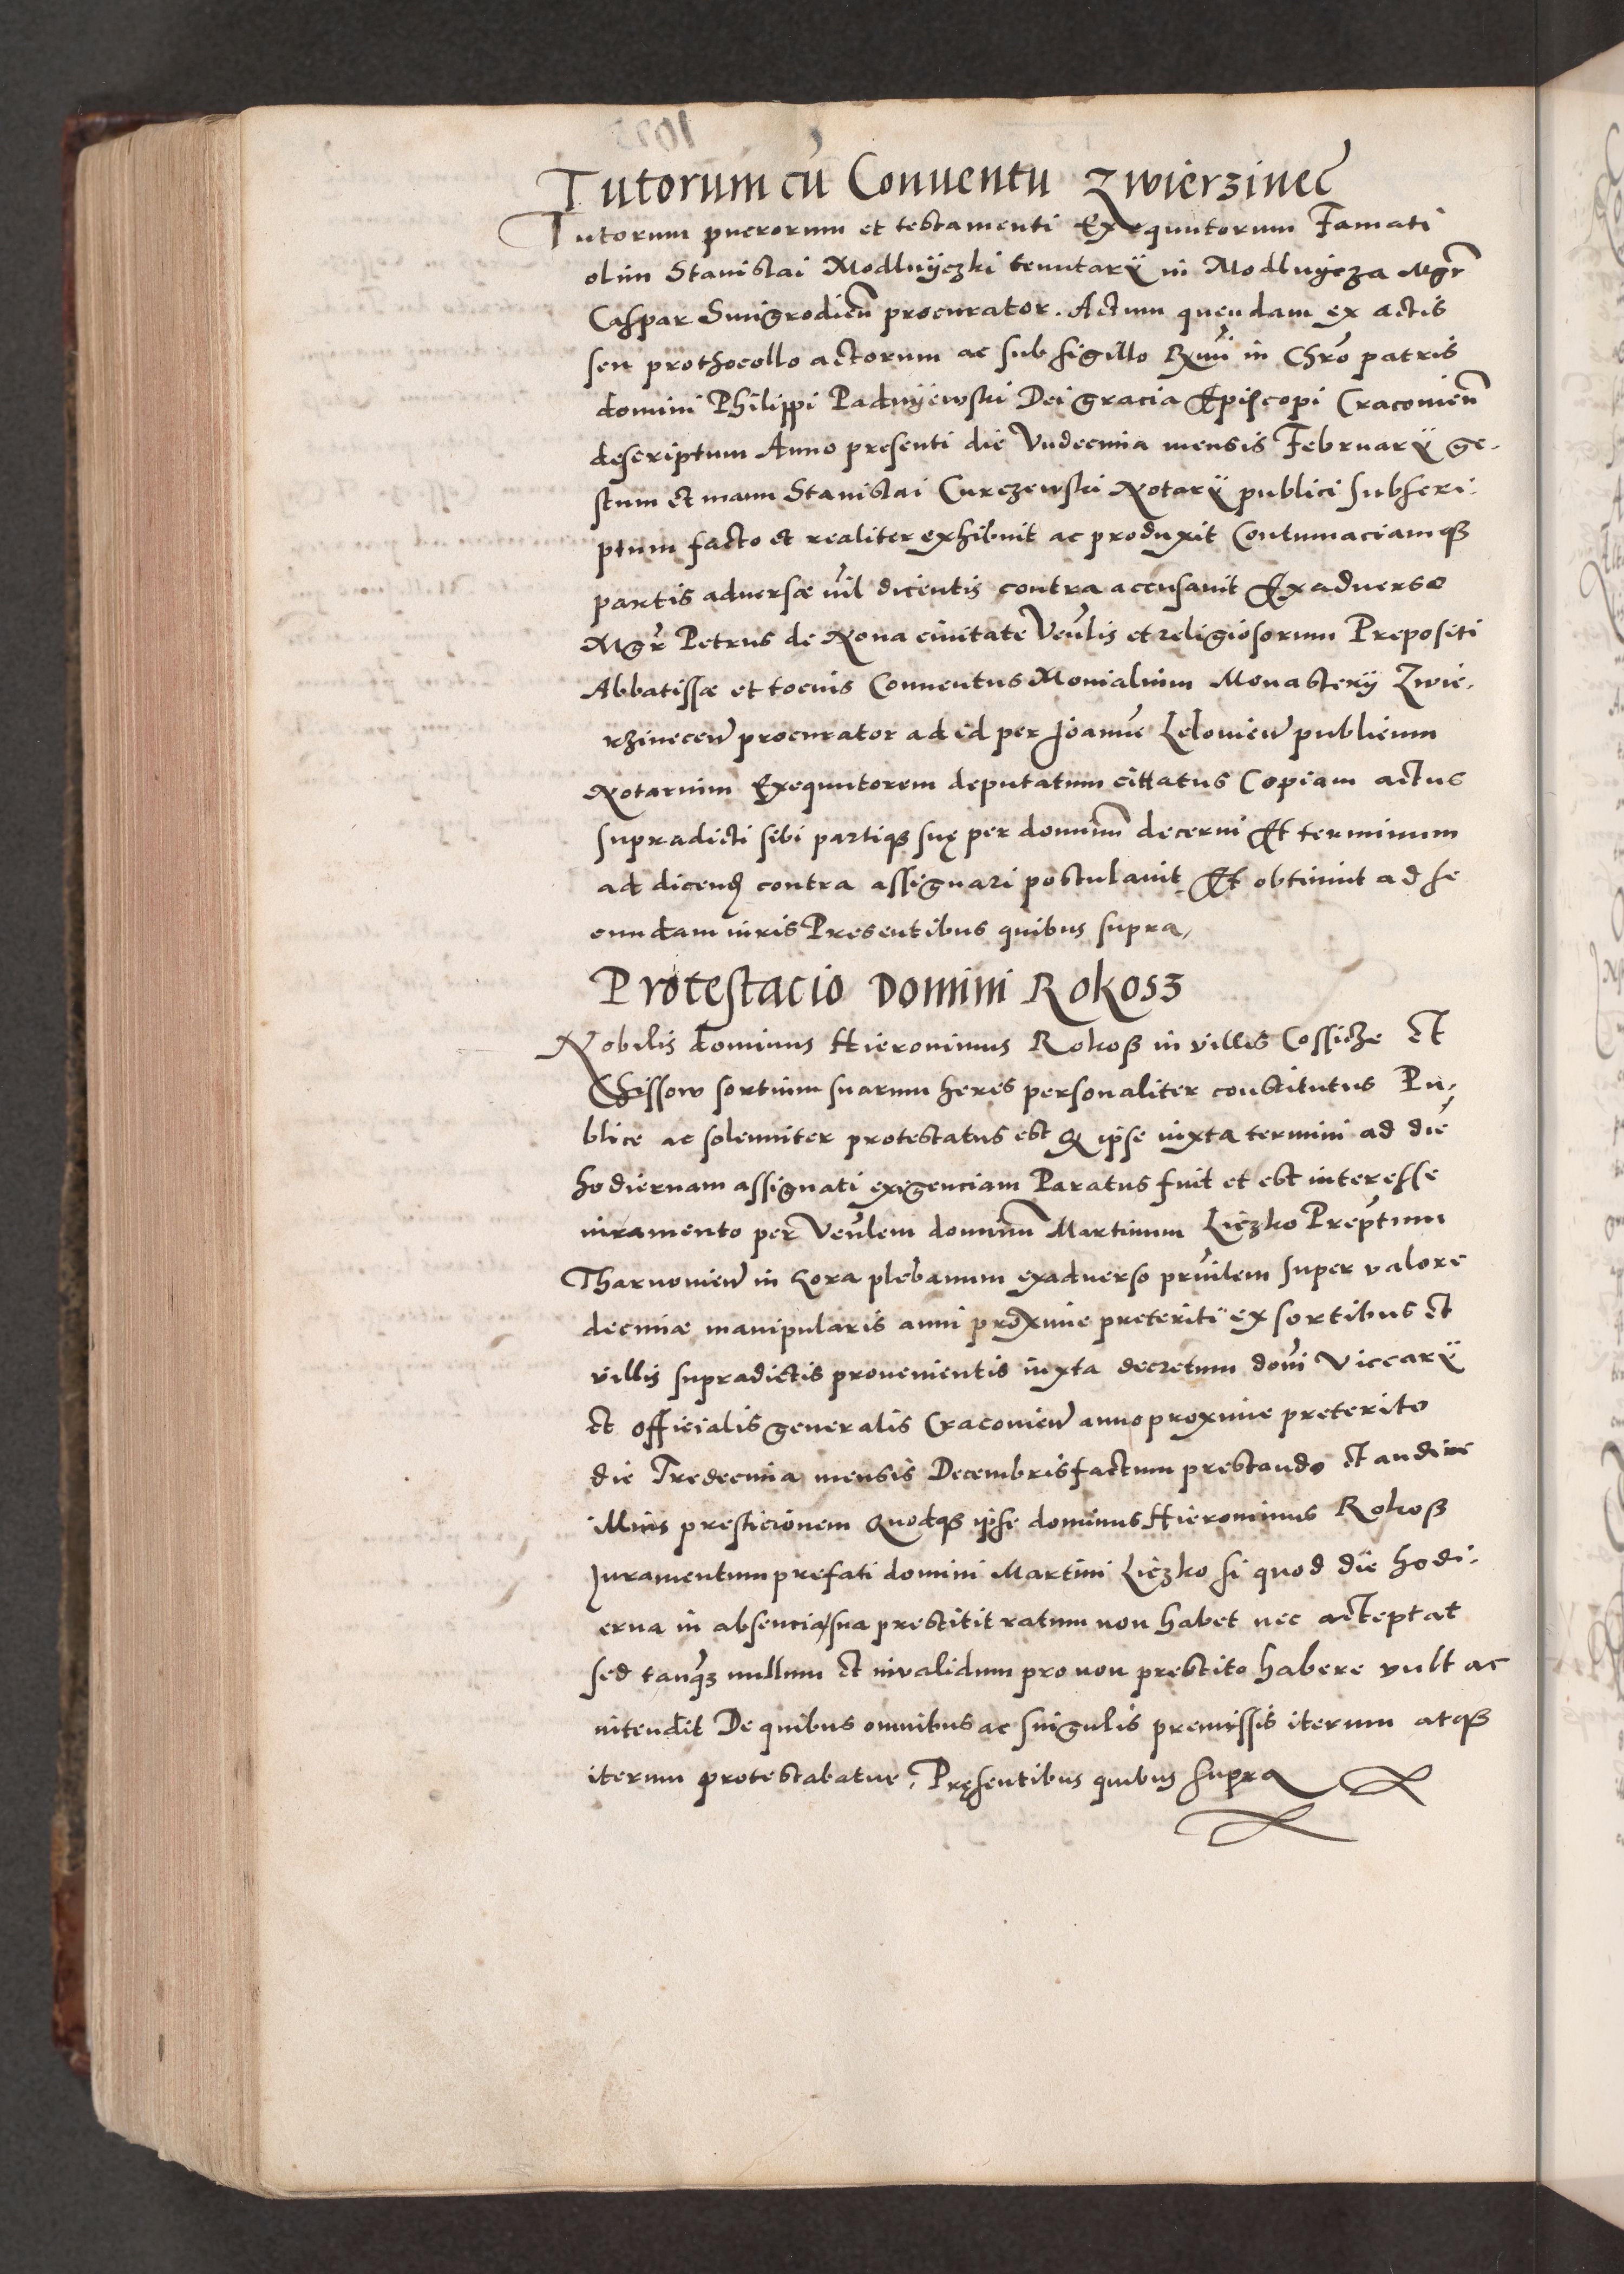 Tutorum cũ Conuentu Zwierzinec̃
Tutorum puerorum et testamenti Exequutorum Famati
olim Stanislai Modlnÿczki tenutarÿ in Modlnÿcza Mgr̃
Caspar Smigrodien̄ procurator. Actum quendam ex actis
seu prothocollo actorum ac sub sigillo Rx̃mi in Chr̃o patris
domini Philippi Padnÿewski Dei gracia Episcopi Cracouien̄
descriptum Anno presenti die Vndecima mensis Februarÿ ge-
stum et manu Stanislai Curczewski Notarÿ publici subscri-
ptum facto et realiter exhibuit ac produxit Contumaciamqꝫ
partis aduersæ nil dicentis contra accusauit Ex aduerso
Mgr̃ Petrus de Noua ciuitate Ven̄lis et religiosorum Prepositi
Abbatissæ et tocius Conuentus Monialium Monasterÿ Zwie-
rzinecen̄ procurator ad id per Joann̄e Lelouien̄ publicum
Notarium Exequutorem deputatum cittatus Copiam actus
supradicti sibi partiqꝫ suę per domin̄um decerni Et terminum
ad dicend̄ contra assignari postulauit Et obtinuit ad se
cundam iuris Presentibus quibus supra,
Protestacio Domini Rokosz
Nobilis dominus Hieronimus Rokosz in villis Cossicze Et
Chissow sortium suarum heres personaliter constitutus Pu-
blice ac solenniter protestatus est Q ipse iuxta termini ad diē
hodiernam assignati exigenciam Paratus fuit et est interesse
iuramento per Ven̄lem domin̄um Martinum Liczko Prep̃tum
Tharnouien̄ in Gora plebanum exaduerso prin̄lem super valore
decimæ manipularis anni proxime preteriti ex sortibus et
villis supradictis prouenientis iuxta decretum dom̃i Viccarÿ
et officialis generalis Cracouien̄ anno proxime preterito
die Tredecima mensis Decembris factum prestando et audire
illius presticionem Quodqꝫ ipse dominus Hieronimus Rokosz
Juramentum prefati domini Martini Liczko si quod die hodi-
erna in absencia sua prestitit ratum non habet nec acteptat
sed tanqꝫ nullum et inualidum pro non prestito habere vult ac
intendit De quibus omnibus ac singulis premissis iterum atqꝫ
iterum protestabatur, Pręsentibus quibus supra